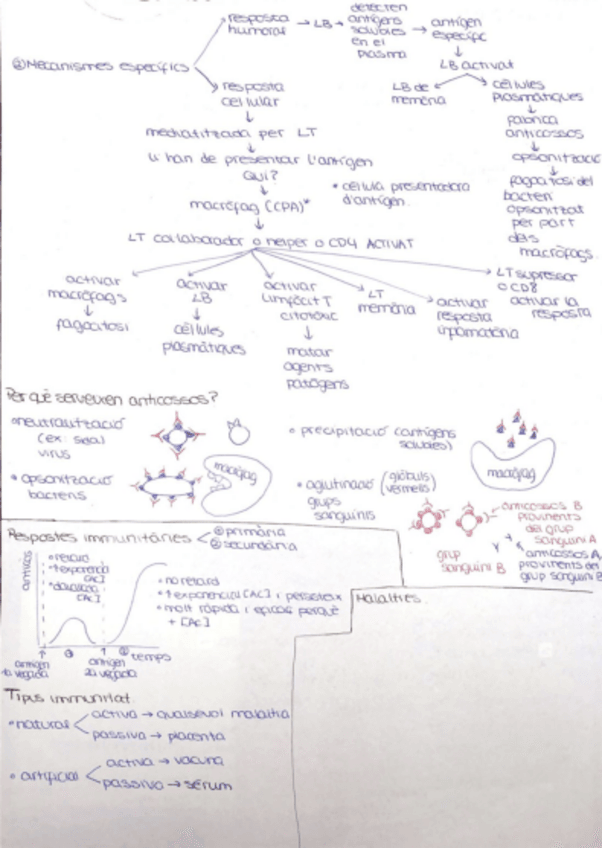 resposta
humoral → LB → detecten
antígens
solubles
en el
plasma → antígen
específic
↓
LB activat
LB de
memòria
cèl·lules
plasmàtiques
↓
fabrica
anticossos
↓
opsonització
↓
fagocitosi del
bacteri
opsonitzat
per part
dels
macròfags.
② Mecanismes específics
resposta
cel·lular
↓
mediatitzada per LT
↓
li han de presentar l'antígen
QUI?
↓
macròfag (CPA)*
* cèl·lula presentadora
d'antígen.
↓
LT col·laborador o helper o CD4 ACTIVAT
activar
macròfags
↓
fagocitosi
activar
LB
↓
cèl·lules
plasmàtiques
activar
limfòcit T
citotòxic
↓
matar
agents
patògens
LT
memòria
activar
resposta
inflamatòria
LT supressor
o CD8
activar la
resposta
Per què serveixen anticossos?
• neutralització
(ex: sida)
virus
• opsonització
bacteris
macròfag
• precipitació (antígens
solubles)
macròfag
• aglutinació (glòbuls
vermells)
grups
sanguinis
grup
sanguini B
anticossos B
provinents
del grup
sanguini A
anticossos A
provinents del
grup sanguini B
Respostes immunitàries
① primària
② secundària
anticos
• retard
• ↑ exponencial
[AC]
• davallada
[AC]
① ② temps
antígen
1a vegada
antígen
2a vegada
• no retard
• ↑ exponencial [AC] i persisteix
• molt ràpida i eficaç perquè
+ [AC]
Malalties.
Tipus immunitat
• natural
activa → qualsevol malaltia
passiva → placenta
• artificial
activa → vacuna
passiva → sèrum